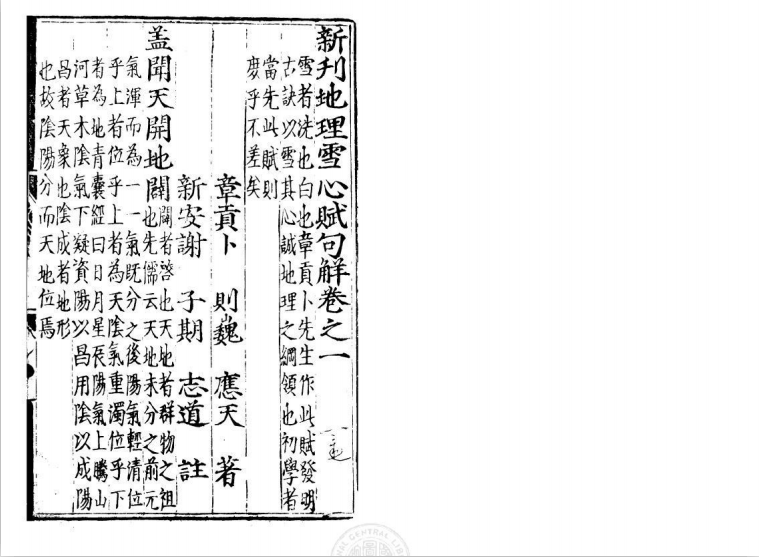 新刊地理雪心賦句解卷之一
雪者洗也白也章貢卜先生作此賦發明
古訣以雪其心誠地理之綱領也初學者
當先此賦則
庶乎不差矣
章貢卜 則巍 應天 著
新安謝 子期 志道 註
盖聞天開地闢
闢者啓也天地者群物之祖
也先儒云天地未分之前元
氣渾而為一一氣既分之後陽氣輕清位
乎上者位乎上者為天陰氣重濁位乎下
者為地青囊經曰日月星辰陽氣上騰山
河草木陰氣下疑資陽以昌用陰以成陽
昌者天象也陰成者地形
也故陰陽分而天地位焉
CENTRAL